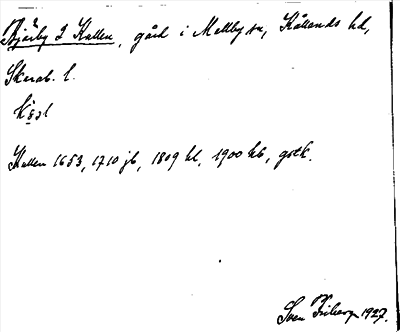 Bjärby 2 Kullen, gård i Mellby sn, Kållands hd,
Skarab. l.
Kullen 1653, 1710 jb, 1809 kl, 1900 kb, gstk.
Sven Friberg 1927.